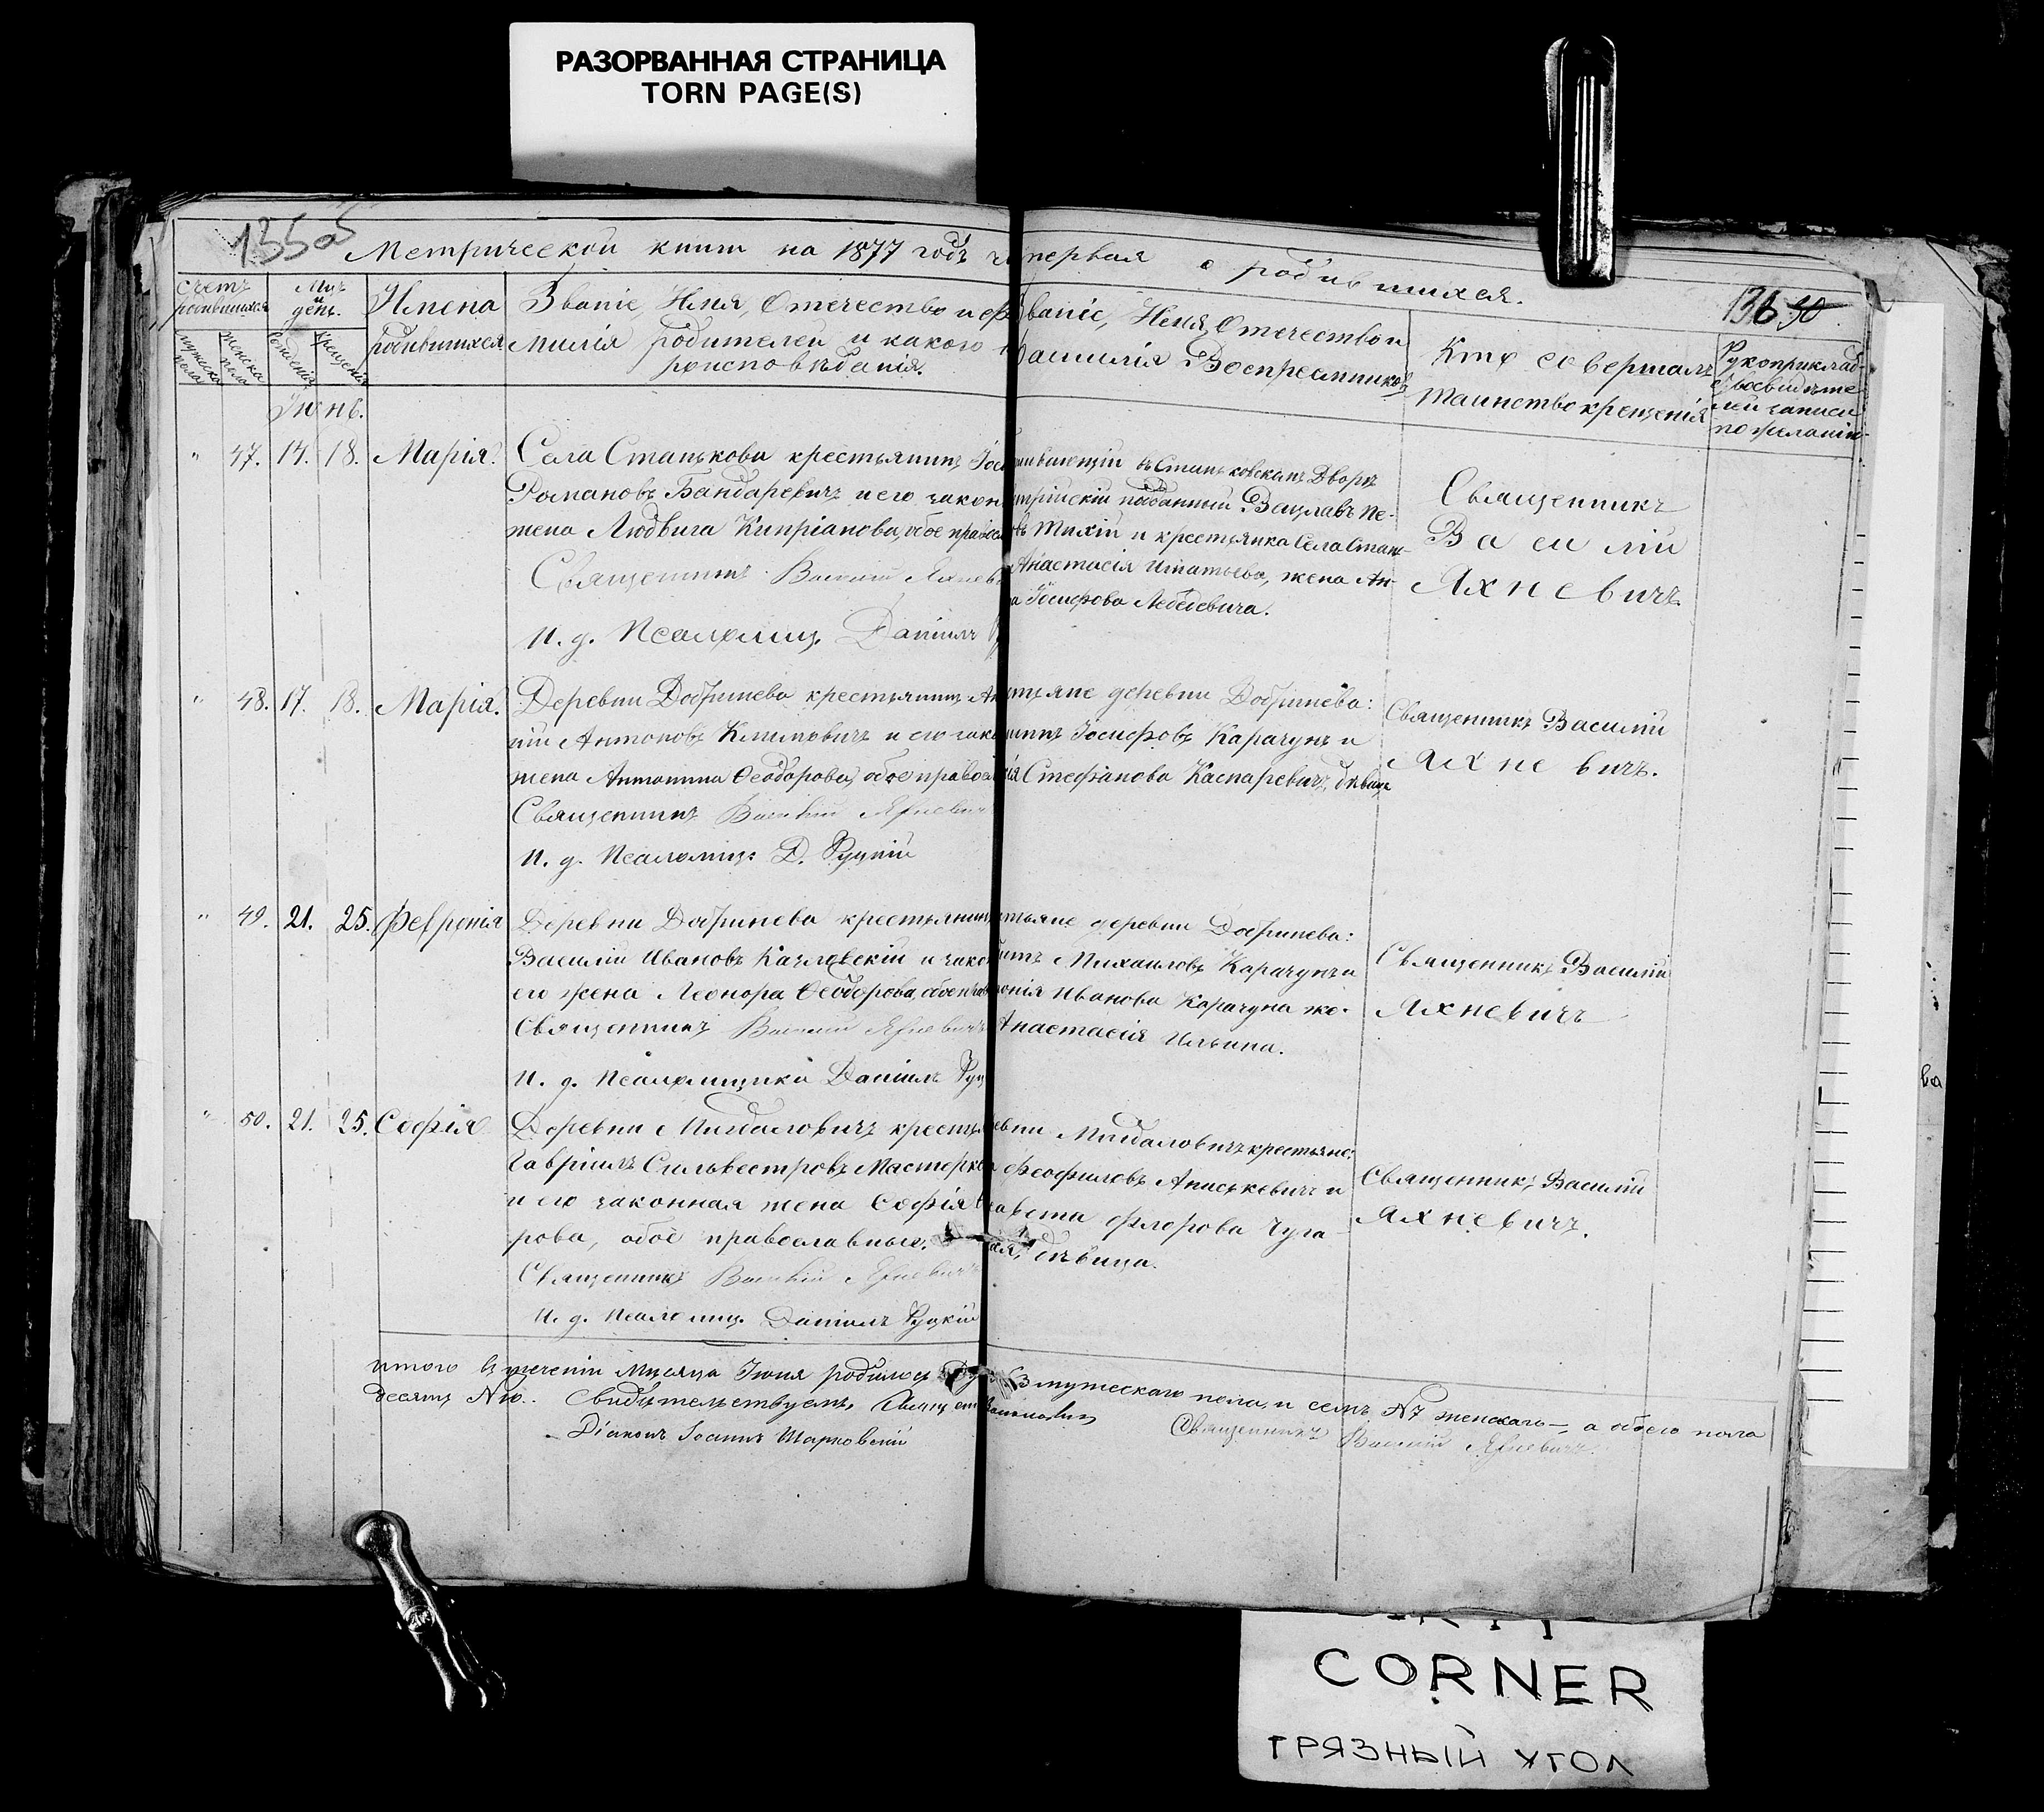 РАЗОРВАННАЯ СТРАНИЦА
TORN PAGE(S)
135об
Метрической книги на 1877 годъ ч
первая о родившихся.
136 90
Счетъ родившихся
Мц. и день.
Имена родившихся
Званіе, Имя, Отечество и фа
милія родителей и какого
роисповѣданія.
Званіе, Имя, Отечество и
фамилія Воспреемниковъ
Кто совершалъ
таинство крещенія
Рукоприклад-
свидѣте-
лей записи
по желанію
мужеска пола
женска пола
рожденія
крещенія
Іюнь.
" 47. 14. 18. Марія.
Села Станькова крестьянинъ Іос
Романовъ Бандаревичъ и его закон
жена Людвига Кипріанова, обое правосл
Священникъ Василій Яхневи
И. д. Псаломщ. Даніилъ
живающій въ Станьковскомъ Дворѣ
стрійскій подданный Вацлавъ Пе-
въ Тихій и крестьянка Села Стань-
Анастасія Игнатьева, жена Ан-
а Іосифова Лебедевича.
Священникъ
Василій
Яхневичъ.
" 48. 17. 18. Марія.
Деревни Добринева крестьянинъ Ан
ній Антоновъ Климовичъ и его зако
жена Антонина Ѳеодорова, обое правосл
Священникъ Василій Яхневич
И. д. Псаломщ. Д. Руцкій
стьяне деревни Добринева:
Іосифовъ Карачунъ и
ія Стефанова Каспаревичъ, дѣвица
Священникъ Василій
Яхневичъ.
" 49. 21. 25. Февронія
Деревни Добринева крестьянин
Василій Ивановъ Казловскій и зако
его жена Леонора Ѳеодорова, обое прав
Священникъ Василій Яхневичъ
И. д. Псаломщика Даніилъ Руц
стьяне деревни Добринева:
Михаиловъ Карачунъ и
Иванова Карачуна же-
Анастасія Ильина.
Священникъ Василій
Яхневичъ
" 50. 21. 25. Софія
Деревни Мигдаловичъ крестья
Гавріилъ Сильвестровъ Мастерко
и его законная жена Софія
рова, обое православные.
Священникъ Василій Яхневичъ
И. д. Псаломщ. Даніилъ Руцкій
евни Мигдаловичъ крестьяне:
Феофиловъ Аниськевичъ и
завета Флорова Чуга-
ая, дѣвица.
Священникъ Василій
Яхневичъ.
итого въ теченіи Мѣсяца Іюня родилось
3 мужескаго пола, и семь №7 женскаго, а обоего пола
десять №10. Свидѣтельствуемъ, Свящ
Діаконъ Іоаннъ Шарковскій
Священникъ Василій Яхневичъ.
ва
CORNER
ГРЯЗНЫЙ УГОЛ